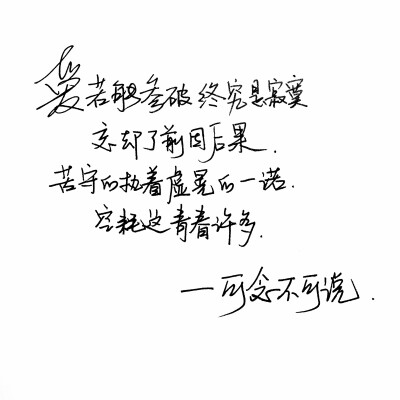 爱若能参破终究是寂寞
忘却了前因后果.
苦守的执着虚晃的一诺.
空耗这青春许多.
一可念不可说.